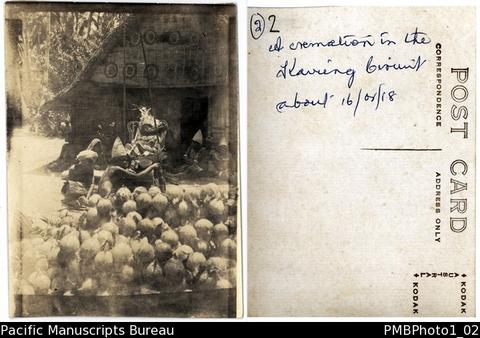 ② 2
A cremation in the
Kavieng Circuit
about 16/01/18
CORRESPONDENCE
POST CARD
ADDRESS ONLY
KODAK
AUSTRAL
KODAK
Pacific Manuscripts Bureau
PMBPhoto1_02